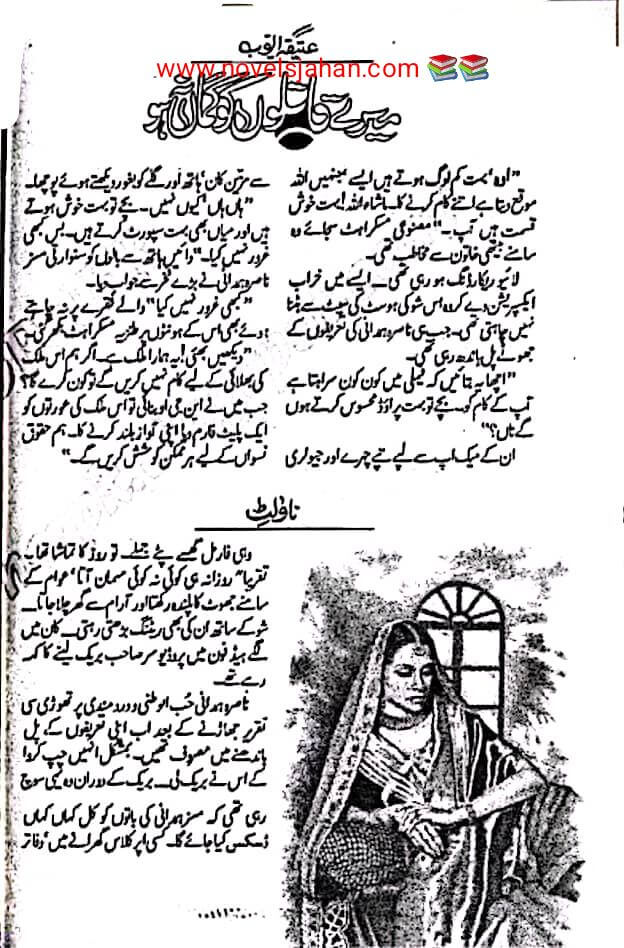 عتیقہ ایوب
www.novelsjahan.com
میرے قاتلوں کو گماں نہ ہو
"اوہ! بہت کم لوگ ہوتے ہیں ایسے جنہیں اللہ
موقع دیتا ہے اتنے کام کرنے کا۔ ماشاء اللہ! بہت خوش
قسمت ہیں آپ۔" مصنوعی مسکراہٹ سجائے وہ
سامنے بیٹھی خاتون سے مخاطب تھی۔
لائیو ریکارڈنگ ہو رہی تھی۔ ایسے میں خراب
ایکسپریشن دے کر وہ اس شو کی ہوسٹ کی سیٹ سے ہٹنا
نہیں چاہتی تھی۔ جب ہی ناصرہ ہمدانی کی تعریفوں کے
جھوٹے پل باندھ رہی تھی۔
"اچھا یہ بتائیں کہ فیملی میں کون کون سراہتا ہے
آپ کے کام کو۔ بچے تو بہت پراؤڈ محسوس کرتے ہوں
گے ناں؟"
ان کے میک اپ سے لپے تپے چہرے اور جیولری
سے مزین کان، ہاتھ اور گلے کو بغور دیکھتے ہوئے پوچھا۔
"ہاں ہاں، کیوں نہیں۔ بچے تو بہت خوش ہوتے
ہیں اور میاں بھی بہت سپورٹ کرتے ہیں۔ بس کبھی
غرور نہیں کیا۔" دائیں ہاتھ سے بالوں کو سنوارتی مسز
ناصرہ ہمدانی نے بڑے فخر سے جواب دیا۔
"کبھی غرور نہیں کیا" والے فقرے پر نہ چاہتے
ہوئے بھی اس کے ہونٹوں پر طنزیہ مسکراہٹ بکھر گئی۔
"دیکھیں بھئی! یہ ہمارا ملک ہے۔ اگر ہم اس ملک
کی بھلائی کے لیے کام نہیں کریں گے تو کون کرے گا؟
جب میں نے این جی او بنائی تو اس ملک کی عورتوں کو
ایک پلیٹ فارم دیا اپنی آواز بلند کرنے کا۔ ہم حقوق
نسواں کے لیے ہر ممکن کوشش کریں گے۔"
ناولٹ
وہی فارمل گھسے پٹے جملے۔ تو روز کا تماشا تھا۔
تقریباً روزانہ ہی کوئی نہ کوئی مہمان آتا، عوام کے
سامنے جھوٹ کا پلندہ رکھتا اور آرام سے گھر چلا جاتا۔
شو کے ساتھ ان کی بھی ریٹنگ بڑھتی رہتی۔ کان میں
لگے ہیڈ فون میں پروڈیوسر صاحب بریک لینے کا کہہ
رہے تھے۔
ناصرہ ہمدانی حُب الوطنی و دردمندی پر تھوڑی سی
تقریر جھاڑنے کے بعد اب اپنی تعریفوں کے پل
باندھنے میں مصروف تھیں۔ بمشکل انہیں چپ کروا
کے اس نے بریک لی۔ بریک کے دوران وہ یہی سوچ
رہی تھی کہ مسز ہمدانی کی باتوں کو کل کہاں کہاں
ڈسکس کیا جائے گا۔ کسی اپر کلاس گھرانے میں، دفاتر